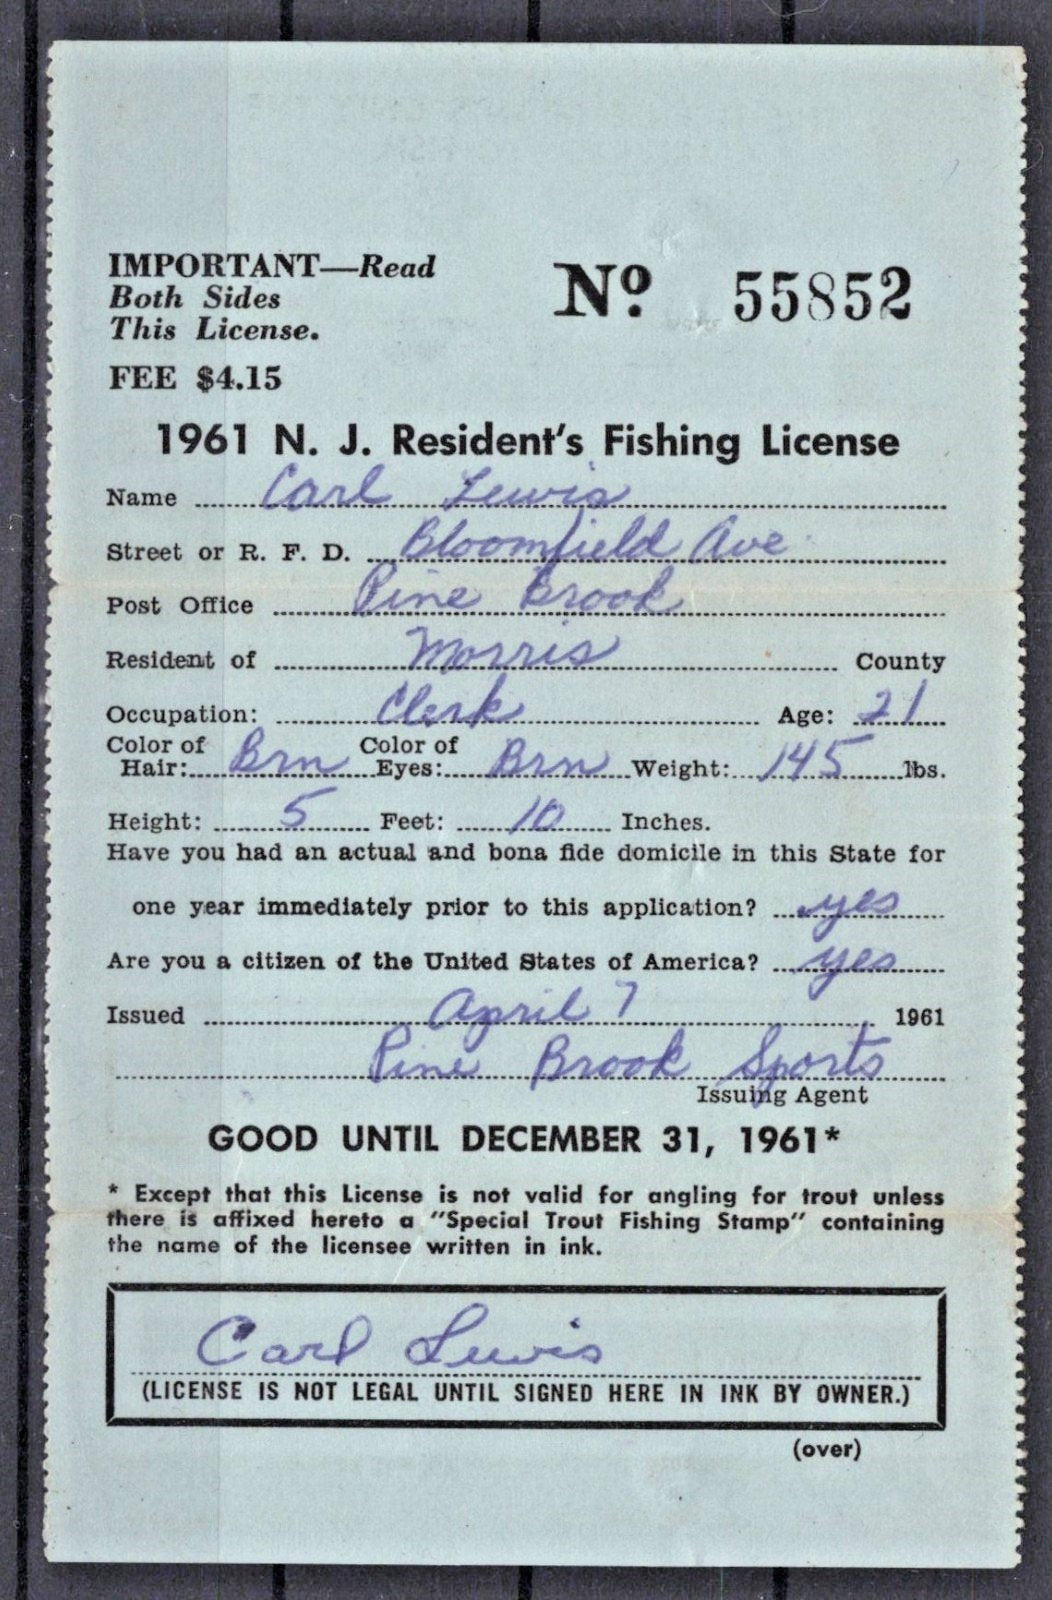 IMPORTANT—Read
Both Sides
This License.
Nº 55852
FEE $4.15
1961 N. J. Resident's Fishing License
Name Carl Lewis
Street or R. F. D. Bloomfield Ave
Post Office Pine Brook
Resident of Morris County
Occupation: Clerk Age: 21
Color of Hair: Brn Color of Eyes: Brn Weight: 145 lbs.
Height: 5 Feet: 10 Inches.
Have you had an actual and bona fide domicile in this State for
one year immediately prior to this application? yes
Are you a citizen of the United States of America? yes
Issued April 7 1961
Pine Brook Sports
Issuing Agent
GOOD UNTIL DECEMBER 31, 1961*
* Except that this License is not valid for angling for trout unless
there is affixed hereto a "Special Trout Fishing Stamp" containing
the name of the licensee written in ink.
Carl Lewis
(LICENSE IS NOT LEGAL UNTIL SIGNED HERE IN INK BY OWNER.)
(over)